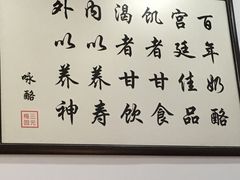 百年奶酪
宫廷佳品
饥者甘食
渴者甘饮
内以养寿
外以养神
咏酪
三元梅园